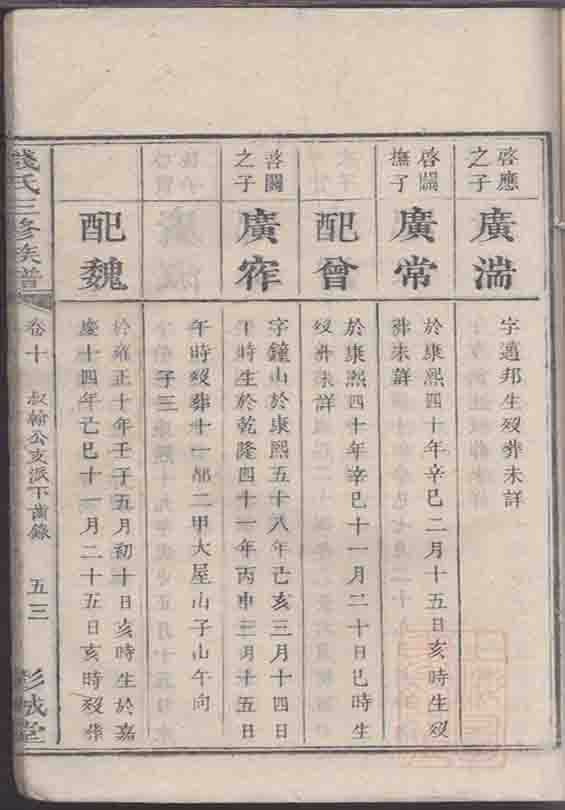 啓應之子
廣湍
字邁邦生歿葬未詳
啓闢撫子
廣常
於康熙四十年辛巳二月十五日亥時生歿
葬未詳
配曾
於康熙四十年辛巳十一月二十日巳時生
歿葬未詳
啓闢之子
廣䆛
字鐘山於康熙五十八年己亥三月十四日
午時生於乾隆四十一年丙申三月十五日
午時歿葬十一都二甲大屋山子山午向
子三
配魏
於雍正十年壬子五月初十日亥時生於嘉
慶十四年己巳十一月二十五日亥時歿葬
錢氏三修族譜
卷十
叔翰公支派下齒錄
五三
彭城堂